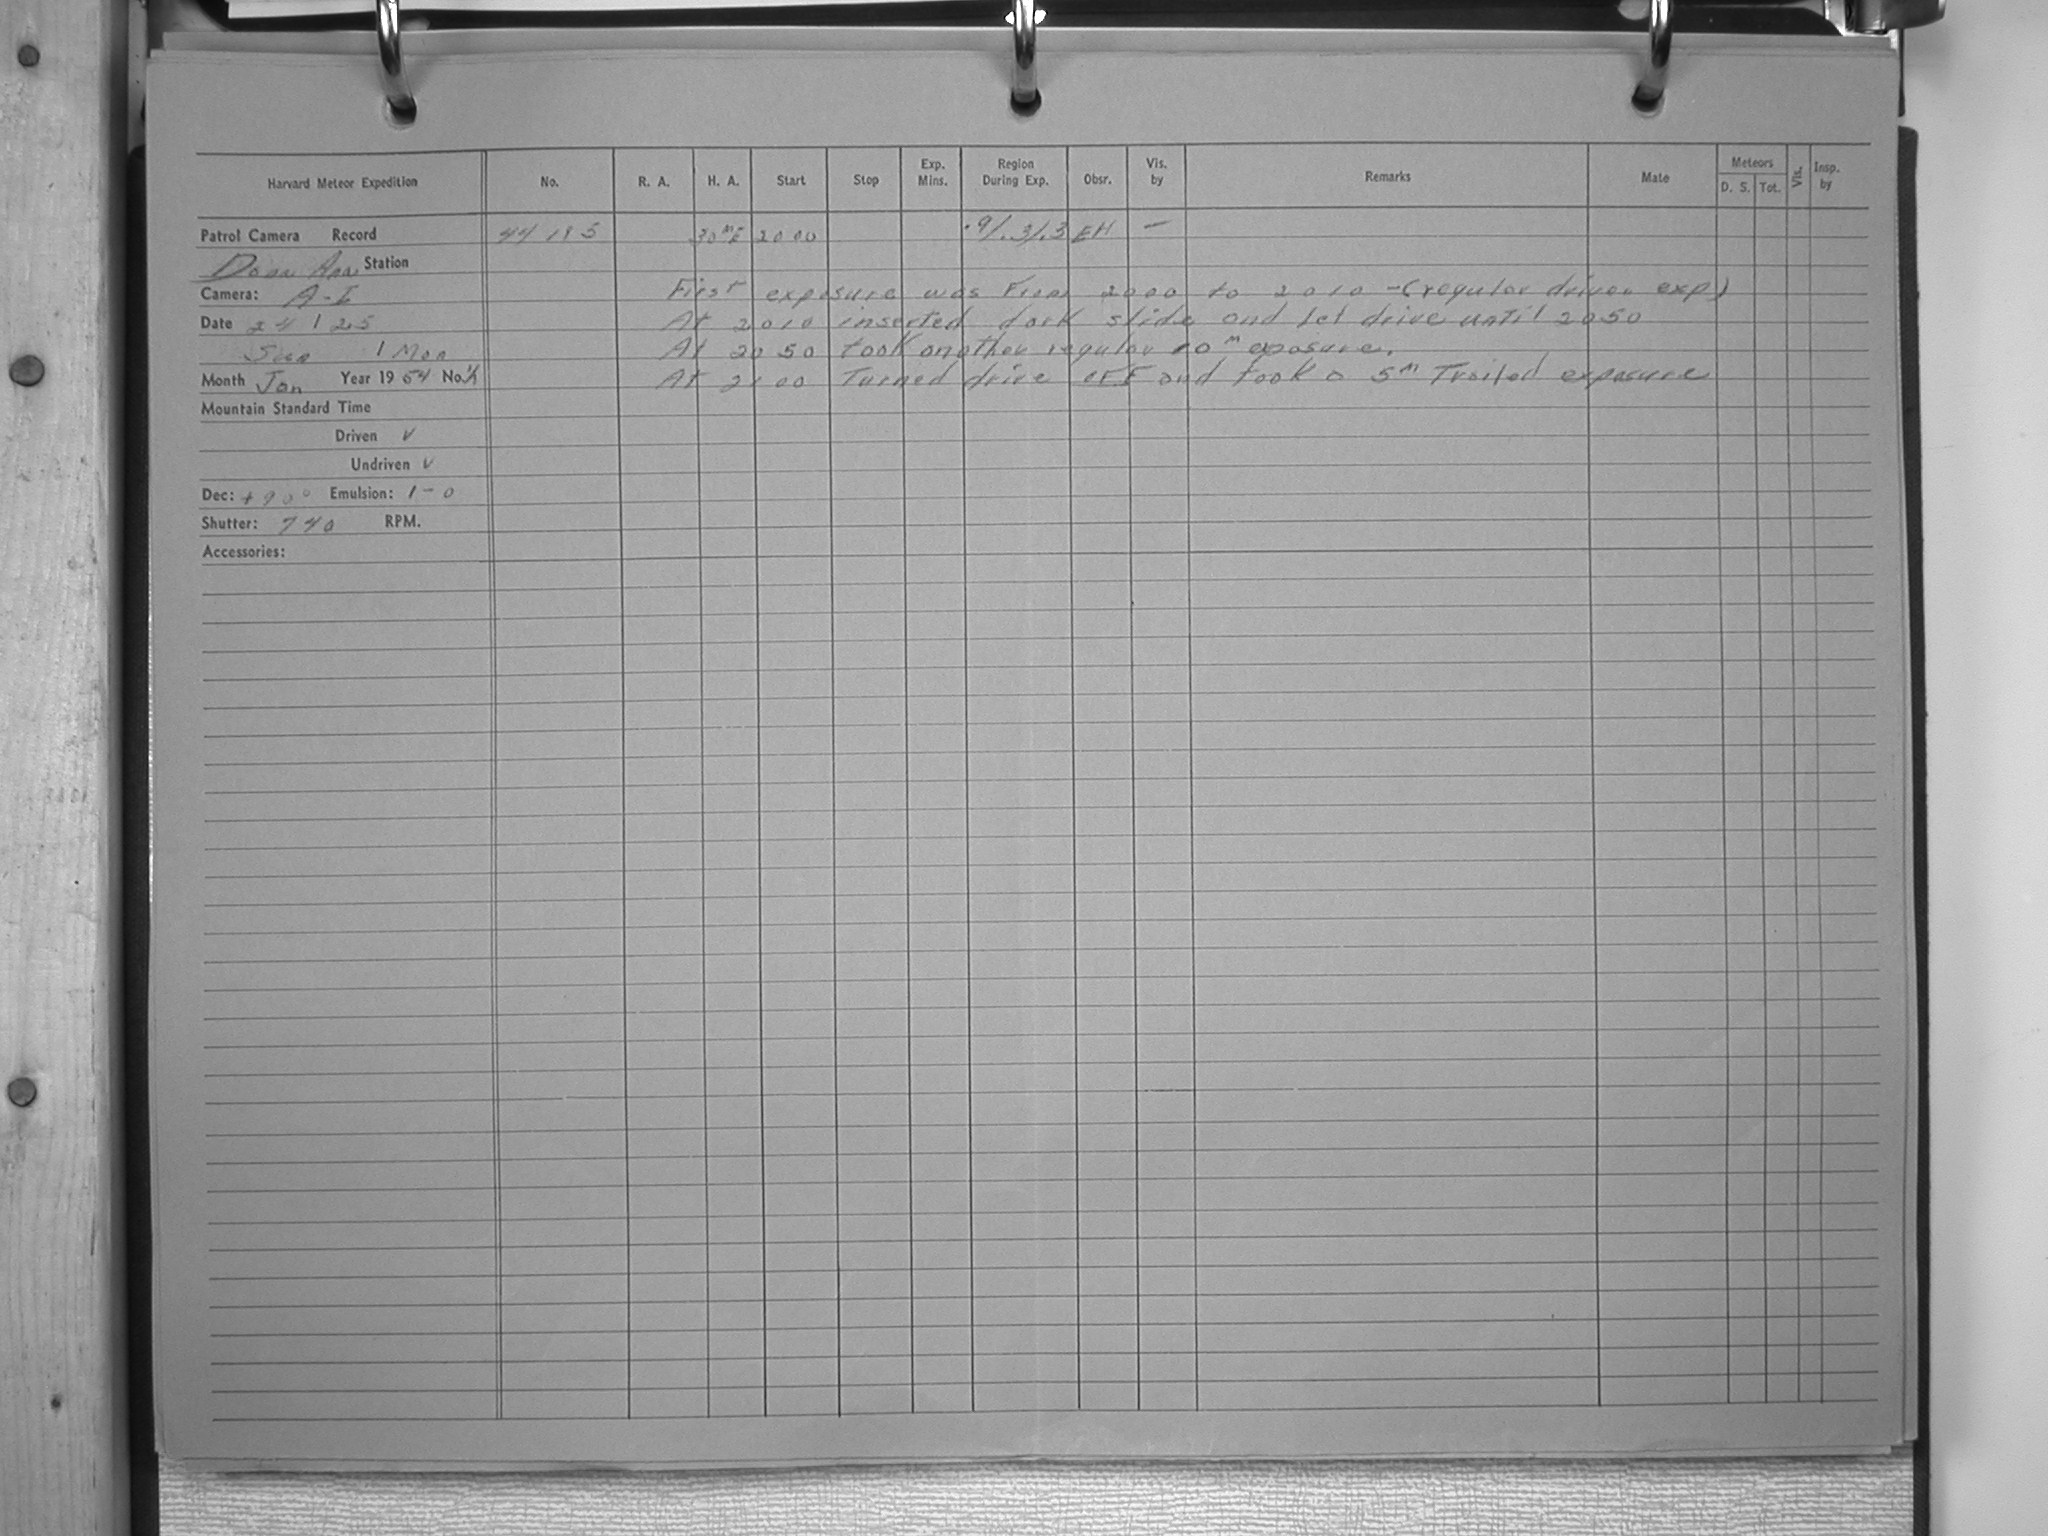 Harvard Meteor Expedition No. R. A. H. A. Start Stop Exp. Mins. Region During Exp. Obsr. Vis. by Remarks Mate Meteors D. S. Tot. Vis. Insp. by
Patrol Camera Record 44 195 30ᵐE 2000 .9/.3/.3 EH —
Dona Ana Station
Camera: A-I First exposure was From 2000 to 2010 -(regular driven exp)
Date 24 | 25 At 2010 inserted dark slide and let drive until 2050
Sun | Mon At 2050 took another regular 10ᵐ exposure.
Month Jan Year 1954 No. At 2100 Turned drive off and took a 5ᵐ Trailed exposure
Mountain Standard Time
Driven ✓
Undriven ✓
Dec: +90° Emulsion: 1-0
Shutter: 740 RPM.
Accessories: